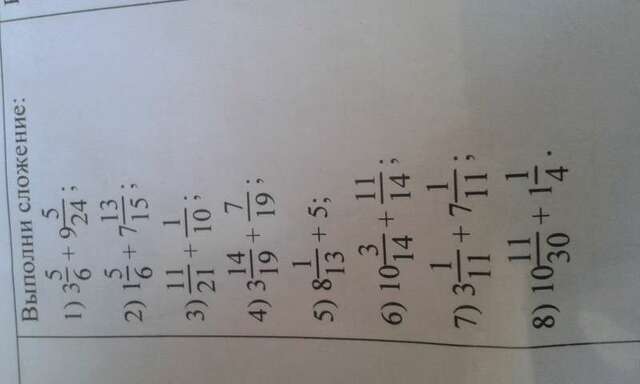 Выполни сложение:
1) 3 5/6 + 9 5/24;
2) 1 5/6 + 7 13/15;
3) 11/21 + 1/10;
4) 3 14/19 + 7/19;
5) 8 1/13 + 5;
6) 10 3/14 + 11/14;
7) 3 1/11 + 7 1/11;
8) 10 11/30 + 1 1/4.